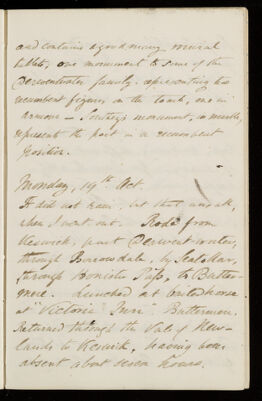 and contains a good many mural
tablets, one monument to some of the
Derwentwater family representing two
recumbent figures on the tomb, one in
armour – Southey's monument, in marble,
represents the poet in a recumbent
position.
Monday, 19th Oct.
It did not rain, but that was all,
when I went out. Rode from
Keswick, past Derwent-water,
through Borrowdale, by Seatollar,
through Honister Pass, to Butter-
mere. Lunched at
at "Victoria" Inn. Buttermere.
Returned through the Vale of New-
lands to Keswick, having been
absent about seven hours.